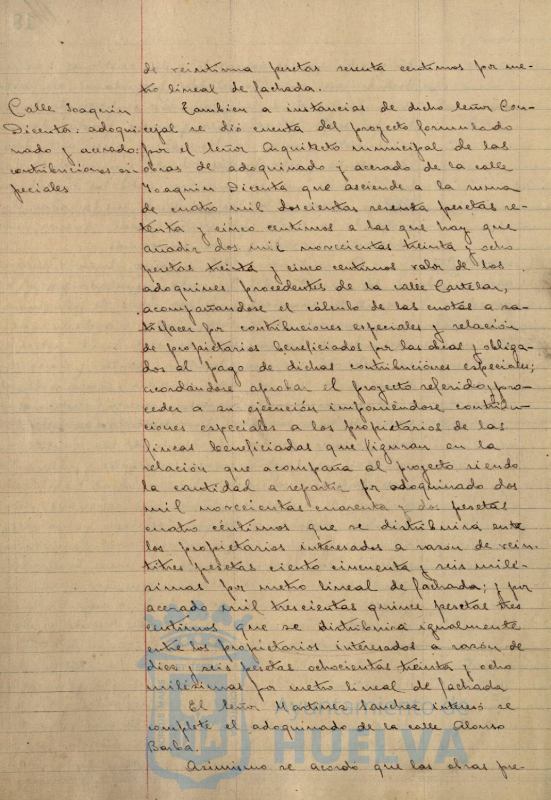 de veintiuna pesetas sesenta centimos por me-
tro lineal de fachada.
Calle Joaquin
Dicenta: adoqui-
nado y acerado:
contribuciones es-
peciales
Tambien a instancias de dicho señor Con-
cejal se dió cuenta del proyecto formulado
por el señor Arquitecto municipal de las
obras de adoquinado y acerado de la calle
Joaquin Dicenta que asciende a la suma
de cuatro mil doscientas sesenta pesetas se-
tenta y cinco centimos a las que hay que
añadir dos mil novecientas treinta y ocho
pesetas treinta y cinco centimos valor de los
adoquines procedentes de la calle Castelar,
acompañandose el cálculo de las cuotas a sa-
tisfacer por contribuciones especiales y relación
de propietarios beneficiados por las obras y obliga-
dos al pago de dichas contribuciones especiales;
acordándose aprobar el proyecto referido, pro-
ceder a su ejecución imponiéndose contribu-
ciones especiales a los propietarios de las
fincas beneficiadas que figuran en la
relación que acompaña al proyecto siendo
la cantidad a repartir por adoquinado dos
mil novecientas cuarenta y dos pesetas
cuatro céntimos que se distribuirá entre
los propietarios interesados a razón de vein-
titres pesetas ciento cincuenta y seis milé-
simas por metro lineal de fachada; y por
acerado mil trescientas quince pesetas tres
centimos que se distribuirá igualmente
entre los propietarios interesados a razón de
diez y seis pesetas ochocientas treinta y ocho
milésimas por metro lineal de fachada
El señor Martinez Sanchez interesó se
complete el adoquinado de la calle Alonso
Barba.
Asimismo se acordó que las obras pre-
Ayuntamiento de
HUELVA